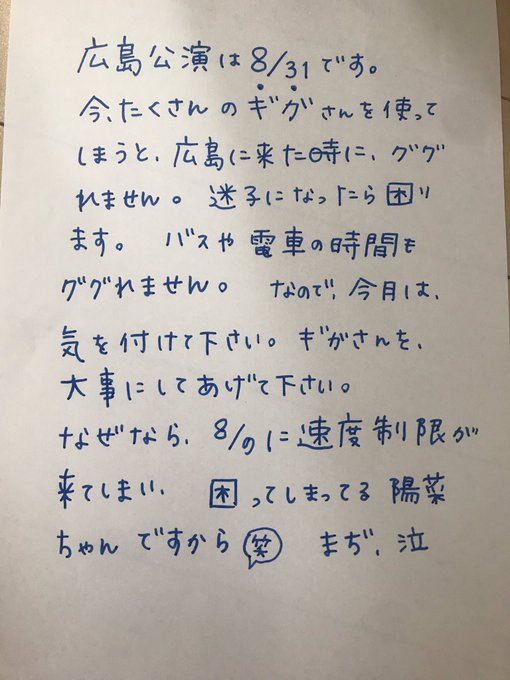 広島公演は8/31です。
今、たくさんのギガさんを使って
しまうと、広島に来た時に、ググ
れません。迷子になったら困り
ます。 バスや電車の時間も
ググれません。 なので、今月は、
気を付けて下さい。ギガさんを、
大事にしてあげて下さい。
なぜなら、8/のに速度制限が
来てしまい、 困ってしまってる陽菜
ちゃんですから笑 まぢ、泣